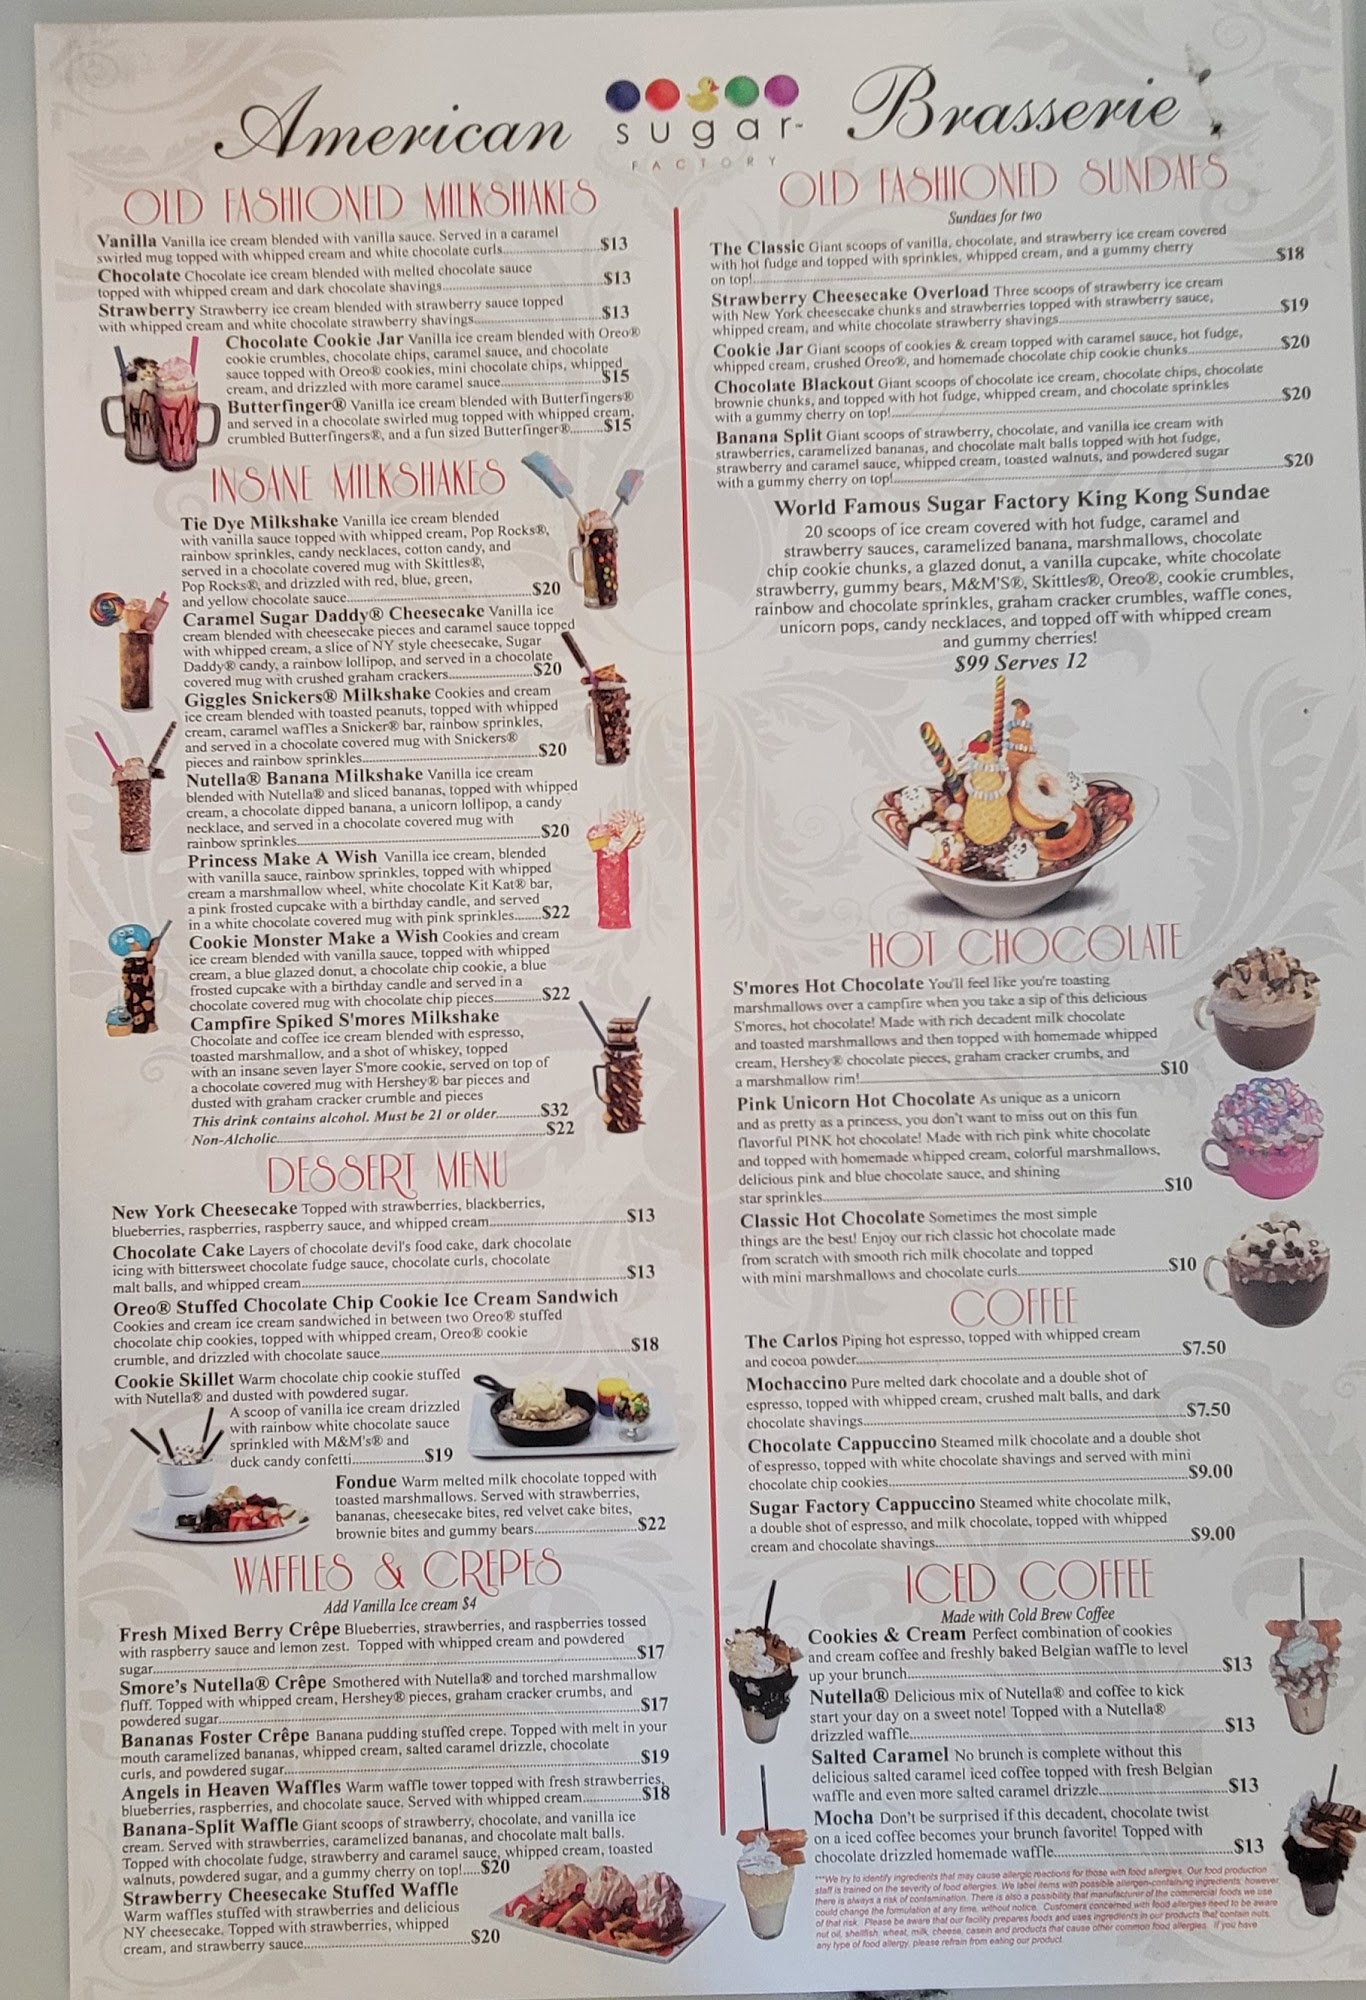 American
sugar
FACTORY
Brasserie
OLD FASHIONED MILKSHAKES
Vanilla Vanilla ice cream blended with vanilla sauce. Served in a caramel
swirled mug topped with whipped cream and white chocolate curls....$13
Chocolate Chocolate ice cream blended with melted chocolate sauce
topped with whipped cream and dark chocolate shavings....$13
Strawberry Strawberry ice cream blended with strawberry sauce topped
with whipped cream and white chocolate strawberry shavings....$13
Chocolate Cookie Jar Vanilla ice cream blended with Oreo®
cookie crumbles, chocolate chips, caramel sauce, and chocolate
sauce topped with Oreo® cookies, mini chocolate chips, whipped
cream, and drizzled with more caramel sauce....$15
Butterfinger® Vanilla ice cream blended with Butterfingers®
and served in a chocolate swirled mug topped with whipped cream,
crumbled Butterfingers®, and a fun sized Butterfinger®....$15
INSANE MILKSHAKES
Tie Dye Milkshake Vanilla ice cream blended
with vanilla sauce topped with whipped cream, Pop Rocks®,
rainbow sprinkles, candy necklaces, cotton candy, and
served in a chocolate covered mug with Skittles®,
Pop Rocks®, and drizzled with red, blue, green,
and yellow chocolate sauce....$20
Caramel Sugar Daddy® Cheesecake Vanilla ice
cream blended with cheesecake pieces and caramel sauce topped
with whipped cream, a slice of NY style cheesecake, Sugar
Daddy® candy, a rainbow lollipop, and served in a chocolate
covered mug with crushed graham crackers....$20
Giggles Snickers® Milkshake Cookies and cream
ice cream blended with toasted peanuts, topped with whipped
cream, caramel waffles a Snicker® bar, rainbow sprinkles,
and served in a chocolate covered mug with Snickers®
pieces and rainbow sprinkles....$20
Nutella® Banana Milkshake Vanilla ice cream
blended with Nutella® and sliced bananas, topped with whipped
cream, a chocolate dipped banana, a unicorn lollipop, a candy
necklace, and served in a chocolate covered mug with
rainbow sprinkles....$20
Princess Make A Wish Vanilla ice cream, blended
with vanilla sauce, rainbow sprinkles, topped with whipped
cream a marshmallow wheel, white chocolate Kit Kat® bar,
a pink frosted cupcake with a birthday candle, and served
in a white chocolate covered mug with pink sprinkles....$22
Cookie Monster Make a Wish Cookies and cream
ice cream blended with vanilla sauce, topped with whipped
cream, a blue glazed donut, a chocolate chip cookie, a blue
frosted cupcake with a birthday candle and served in a
chocolate covered mug with chocolate chip pieces....$22
Campfire Spiked S'mores Milkshake
Chocolate and coffee ice cream blended with espresso,
toasted marshmallow, and a shot of whiskey, topped
with an insane seven layer S'more cookie, served on top of
a chocolate covered mug with Hershey® bar pieces and
dusted with graham cracker crumble and pieces
This drink contains alcohol. Must be 21 or older....$32
Non-Alcholic....$22
DESSERT MENU
New York Cheesecake Topped with strawberries, blackberries,
blueberries, raspberries, raspberry sauce, and whipped cream....$13
Chocolate Cake Layers of chocolate devil's food cake, dark chocolate
icing with bittersweet chocolate fudge sauce, chocolate curls, chocolate
malt balls, and whipped cream....$13
Oreo® Stuffed Chocolate Chip Cookie Ice Cream Sandwich
Cookies and cream ice cream sandwiched in between two Oreo® stuffed
chocolate chip cookies, topped with whipped cream, Oreo® cookie
crumble, and drizzled with chocolate sauce....$18
Cookie Skillet Warm chocolate chip cookie stuffed
with Nutella® and dusted with powdered sugar.
A scoop of vanilla ice cream drizzled
with rainbow white chocolate sauce
sprinkled with M&M's® and
duck candy confetti....$19
Fondue Warm melted milk chocolate topped with
toasted marshmallows. Served with strawberries,
bananas, cheesecake bites, red velvet cake bites,
brownie bites and gummy bears....$22
WAFFLES & CREPES
Add Vanilla Ice cream $4
Fresh Mixed Berry Crêpe Blueberries, strawberries, and raspberries tossed
with raspberry sauce and lemon zest. Topped with whipped cream and powdered
sugar....$17
Smore's Nutella® Crêpe Smothered with Nutella® and torched marshmallow
fluff. Topped with whipped cream, Hershey® pieces, graham cracker crumbs, and
powdered sugar....$17
Bananas Foster Crêpe Banana pudding stuffed crepe. Topped with melt in your
mouth caramelized bananas, whipped cream, salted caramel drizzle, chocolate
curls, and powdered sugar....$19
Angels in Heaven Waffles Warm waffle tower topped with fresh strawberries,
blueberries, raspberries, and chocolate sauce. Served with whipped cream....$18
Banana-Split Waffle Giant scoops of strawberry, chocolate, and vanilla ice
cream. Served with strawberries, caramelized bananas, and chocolate malt balls.
Topped with chocolate fudge, strawberry and caramel sauce, whipped cream, toasted
walnuts, powdered sugar, and a gummy cherry on top!....$20
Strawberry Cheesecake Stuffed Waffle
Warm waffles stuffed with strawberries and delicious
NY cheesecake. Topped with strawberries, whipped
cream, and strawberry sauce....$20
OLD FASHIONED SUNDAES
Sundaes for two
The Classic Giant scoops of vanilla, chocolate, and strawberry ice cream covered
with hot fudge and topped with sprinkles, whipped cream, and a gummy cherry
on top!....$18
Strawberry Cheesecake Overload Three scoops of strawberry ice cream
with New York cheesecake chunks and strawberries topped with strawberry sauce,
whipped cream, and white chocolate strawberry shavings....$19
Cookie Jar Giant scoops of cookies & cream topped with caramel sauce, hot fudge,
whipped cream, crushed Oreo®, and homemade chocolate chip cookie chunks....$20
Chocolate Blackout Giant scoops of chocolate ice cream, chocolate chips, chocolate
brownie chunks, and topped with hot fudge, whipped cream, and chocolate sprinkles
with a gummy cherry on top!....$20
Banana Split Giant scoops of strawberry, chocolate, and vanilla ice cream with
strawberries, caramelized bananas, and chocolate malt balls topped with hot fudge,
strawberry and caramel sauce, whipped cream, toasted walnuts, and powdered sugar
with a gummy cherry on top!....$20
World Famous Sugar Factory King Kong Sundae
20 scoops of ice cream covered with hot fudge, caramel and
strawberry sauces, caramelized banana, marshmallows, chocolate
chip cookie chunks, a glazed donut, a vanilla cupcake, white chocolate
strawberry, gummy bears, M&M'S®, Skittles®, Oreo®, cookie crumbles,
rainbow and chocolate sprinkles, graham cracker crumbles, waffle cones,
unicorn pops, candy necklaces, and topped off with whipped cream
and gummy cherries!
$99 Serves 12
HOT CHOCOLATE
S'mores Hot Chocolate You'll feel like you're toasting
marshmallows over a campfire when you take a sip of this delicious
S'mores, hot chocolate! Made with rich decadent milk chocolate
and toasted marshmallows and then topped with homemade whipped
cream, Hershey® chocolate pieces, graham cracker crumbs, and
a marshmallow rim!....$10
Pink Unicorn Hot Chocolate As unique as a unicorn
and as pretty as a princess, you don't want to miss out on this fun
flavorful PINK hot chocolate! Made with rich pink white chocolate
and topped with homemade whipped cream, colorful marshmallows,
delicious pink and blue chocolate sauce, and shining
star sprinkles....$10
Classic Hot Chocolate Sometimes the most simple
things are the best! Enjoy our rich classic hot chocolate made
from scratch with smooth rich milk chocolate and topped
with mini marshmallows and chocolate curls....$10
COFFEE
The Carlos Piping hot espresso, topped with whipped cream
and cocoa powder....$7.50
Mochaccino Pure melted dark chocolate and a double shot of
espresso, topped with whipped cream, crushed malt balls, and dark
chocolate shavings....$7.50
Chocolate Cappuccino Steamed milk chocolate and a double shot
of espresso, topped with white chocolate shavings and served with mini
chocolate chip cookies....$9.00
Sugar Factory Cappuccino Steamed white chocolate milk,
a double shot of espresso, and milk chocolate, topped with whipped
cream and chocolate shavings....$9.00
ICED COFFEE
Made with Cold Brew Coffee
Cookies & Cream Perfect combination of cookies
and cream coffee and freshly baked Belgian waffle to level
up your brunch....$13
Nutella® Delicious mix of Nutella® and coffee to kick
start your day on a sweet note! Topped with a Nutella®
drizzled waffle....$13
Salted Caramel No brunch is complete without this
delicious salted caramel iced coffee topped with fresh Belgian
waffle and even more salted caramel drizzle....$13
Mocha Don't be surprised if this decadent, chocolate twist
on a iced coffee becomes your brunch favorite! Topped with
chocolate drizzled homemade waffle....$13
***We try to identify ingredients that may cause allergic reactions for those with food allergies. Our food production
staff is trained on the severity of food allergies. We label items with possible allergen-containing ingredients; however
there is always a risk of contamination. There is also a possibility that manufacturer of the commercial foods we use
could change the formulation at any time, without notice. Customers concerned with food allergies need to be aware
of that risk. Please be aware that our facility prepares foods and uses ingredients in our products that contain nuts,
nut oil, shellfish, wheat, milk, cheese, casein and products that cause other common food allergies. If you have
any type of food allergy, please refrain from eating our product.